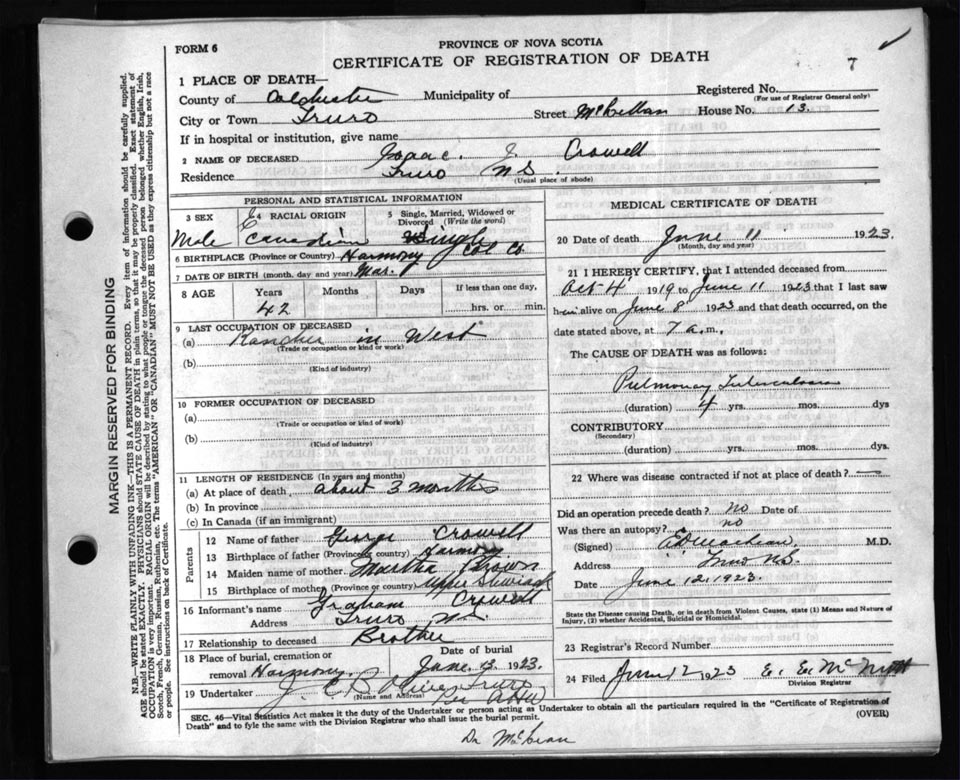 PROVINCE OF NOVA SCOTIA
FORM 6
CERTIFICATE OF REGISTRATION OF DEATH
7
1 PLACE OF DEATH—
County of Colchester Municipality of Registered No.
(For use of Registrar General only)
City or Town Truro Street McClellan House No. 13.
If in hospital or institution, give name
2 NAME OF DECEASED Isaac. J. Crowell
Residence Truro N S.
(Usual place of abode)
PERSONAL AND STATISTICAL INFORMATION
3 SEX 4 RACIAL ORIGIN 5 Single, Married, Widowed or Divorced (Write the word)
Male Canadian Single
6 BIRTHPLACE (Province or Country) Harmony Col Co
7 DATE OF BIRTH (month, day and year) Mar.
8 AGE Years Months Days If less than one day,
42 hrs. or min.
9 LAST OCCUPATION OF DECEASED
(a) Rancher in West
(Trade or occupation or kind of work)
(b)
(Kind of industry)
10 FORMER OCCUPATION OF DECEASED
(a)
(Trade or occupation or kind of work)
(b)
(Kind of industry)
11 LENGTH OF RESIDENCE (In years and months)
(a) At place of death about 3 months
(b) In province
(c) In Canada (if an immigrant)
Parents
12 Name of father George Crowell
13 Birthplace of father (Province or country) Harmony.
14 Maiden name of mother Martha Brown
15 Birthplace of mother (Province or country) Upper Stewiack
16 Informant's name Graham Crowell
Address Truro N.S.
17 Relationship to deceased Brother
18 Place of burial, cremation or removal Harmony Date of burial June 1923.
19 Undertaker Truro
(Name and Address)
MEDICAL CERTIFICATE OF DEATH
20 Date of death June 11 1923.
(Month, day and year)
21 I HEREBY CERTIFY, that I attended deceased from
Oct 4 1919 to June 11 1923 that I last saw
him alive on June 8 1923 and that death occurred, on the
date stated above, at 7 a.m.
The CAUSE OF DEATH was as follows:
Pulmonary Tuberculosis
(duration) 4 yrs. mos. dys
CONTRIBUTORY
(Secondary)
(duration) yrs. mos. dys.
22 Where was disease contracted if not at place of death?
Did an operation precede death? no Date of
Was there an autopsy? no
(Signed) M.D.
Address Truro N.S.
Date June 12. 1923.
State the Disease causing Death, or in death from Violent Causes, state (1) Means and Nature of
Injury, (2) whether Accidental, Suicidal or Homicidal.
23 Registrar's Record Number
24 Filed June 12 1923
Division Registrar
SEC. 46—Vital Statistics Act makes it the duty of the Undertaker or Person acting as Undertaker to obtain all the particulars required in the "Certificate of Registration of
Death" and to fyle the same with the Division Registrar who shall issue the burial permit. (OVER)
Dr
MARGIN RESERVED FOR BINDING
N.B.—WRITE PLAINLY WITH UNFADING INK—THIS IS A PERMANENT RECORD. Every item of information should be carefully supplied.
AGE should be stated EXACTLY. PHYSICIANS should STATE CAUSE OF DEATH in plain terms, so that it may be properly classified. Exact statement of
OCCUPATION is very important. RACIAL ORIGIN will be described by stating to what people or tongue the deceased person belonged whether English, Irish,
Scotch, French, German, Russian, Ruthenian, etc. The terms "AMERICAN" OR "CANADIAN" MUST NOT BE USED as they express citizenship but not a race
or people. See instructions on back of Certificate.